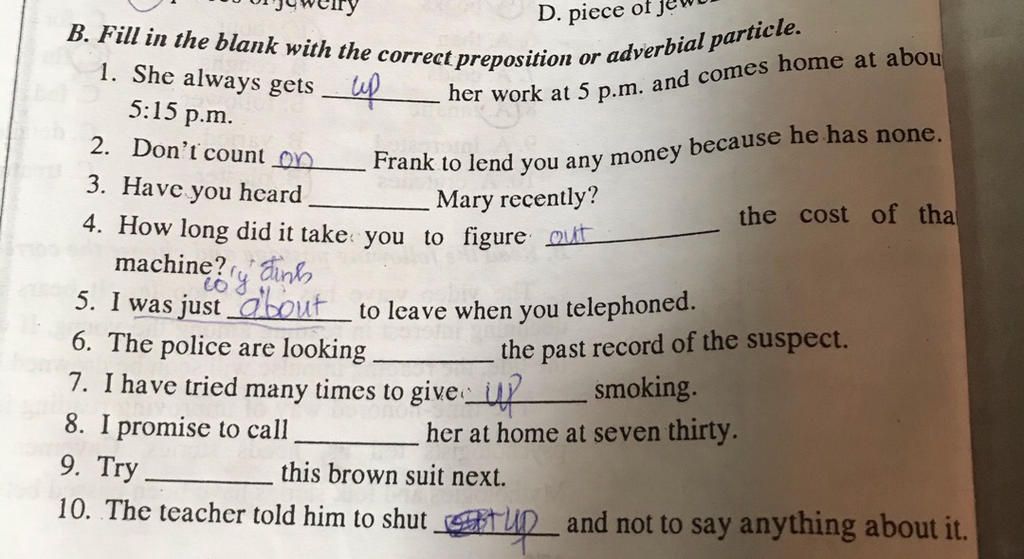 D. piece of
B. Fill in the blank with the correct preposition or adverbial particle.
1. She always gets up her work at 5 p.m. and comes home at abou
5:15 p.m.
2. Don't count on Frank to lend you any money because he has none.
3. Have you heard ________ Mary recently?
4. How long did it take you to figure out the cost of tha
machine? có ý định
5. I was just about to leave when you telephoned.
6. The police are looking ________ the past record of the suspect.
7. I have tried many times to give up smoking.
8. I promise to call ________ her at home at seven thirty.
9. Try ________ this brown suit next.
10. The teacher told him to shut up and not to say anything about it.